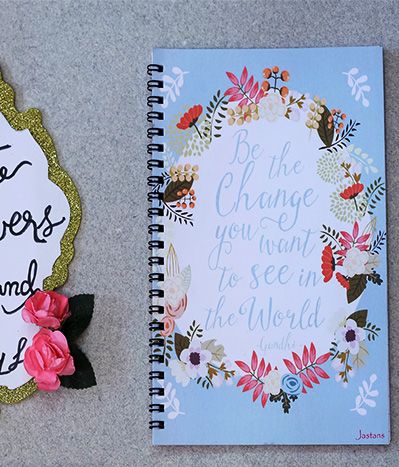 and
Be the
Change
you want
to see in
the World
-Gandhi
Jastans